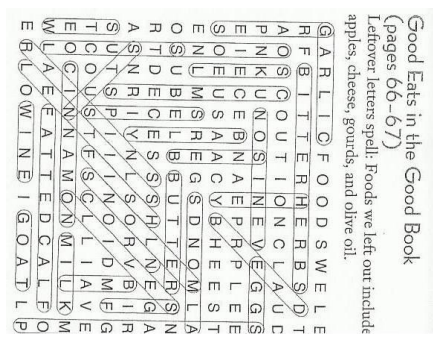 Good Eats in the Good Book
(pages 66–67)
Leftover letters spell: Foods we left out include
apples, cheese, gourds, and olive oil.
G A R L I C F O O D S W E L E
R F B I T T E R H E R B S D T
A O S C O U T I O N C L A U D
P N K U N O S I N E V E G G S
E I E C E B N A E P R P L E E
S O E U S A A C Y B H E E S T
E N L M S R E G S D N O M L A
O S U B E L B B U T T E R S N
R T D E C E S S S H L N E G A
A S N R I Y N L S O R V B I R
S U T S P I I N O I D M E G
T C O U S T F S C L L I A V E
E O C I N N A M O N M I L K M
W L A E E A T T E D C A L E O
E R L O W I N E I G O A T L P